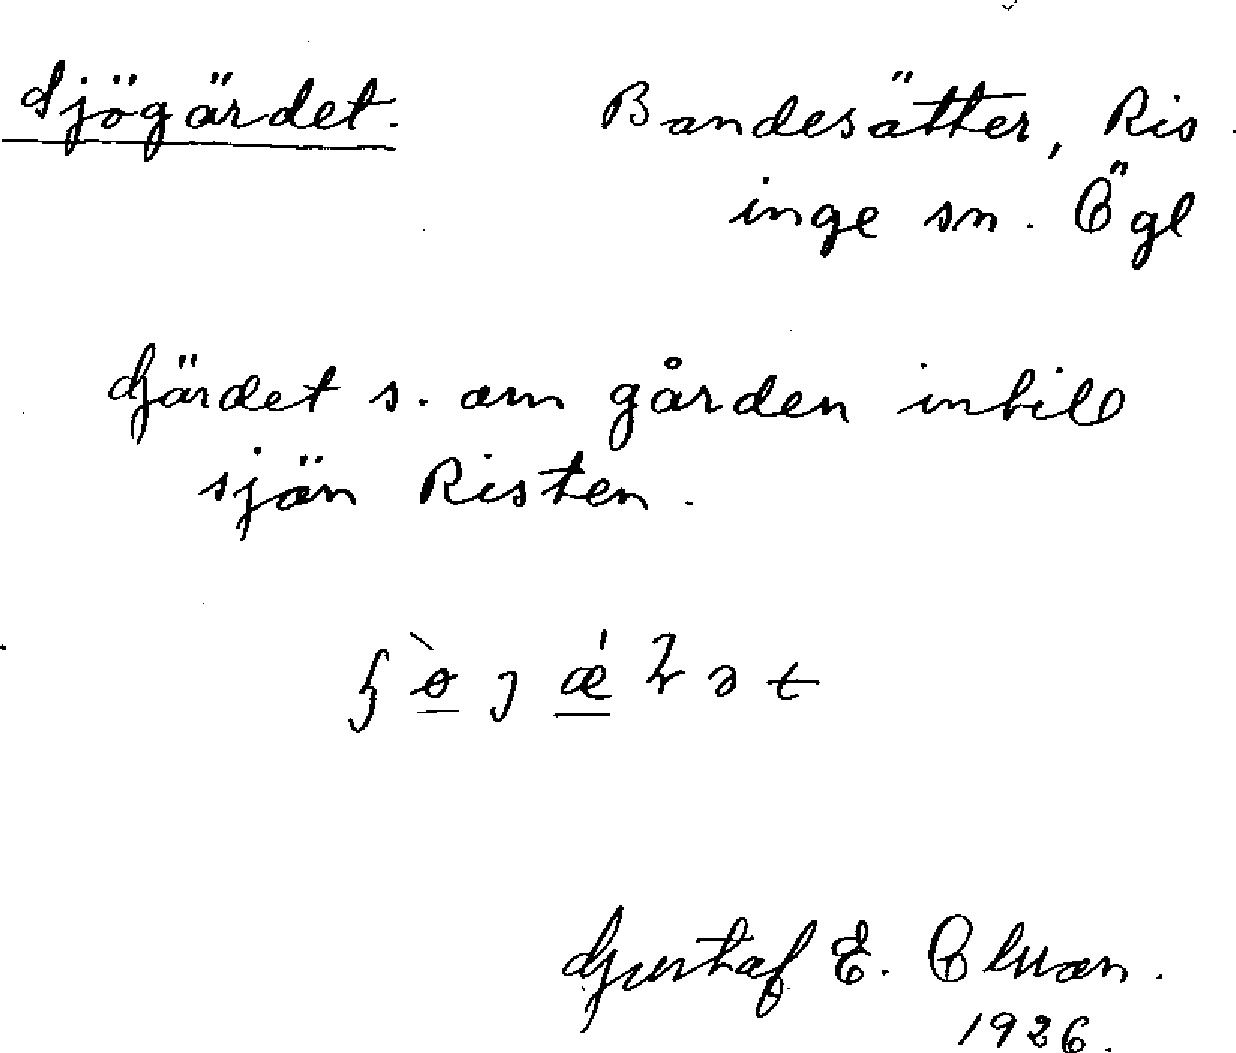 Sjögärdet. Bandesätter, Ris
inge sn. Ögl
Gärdet s. om gården intill
sjön Risten.
Gustaf E.
1926.